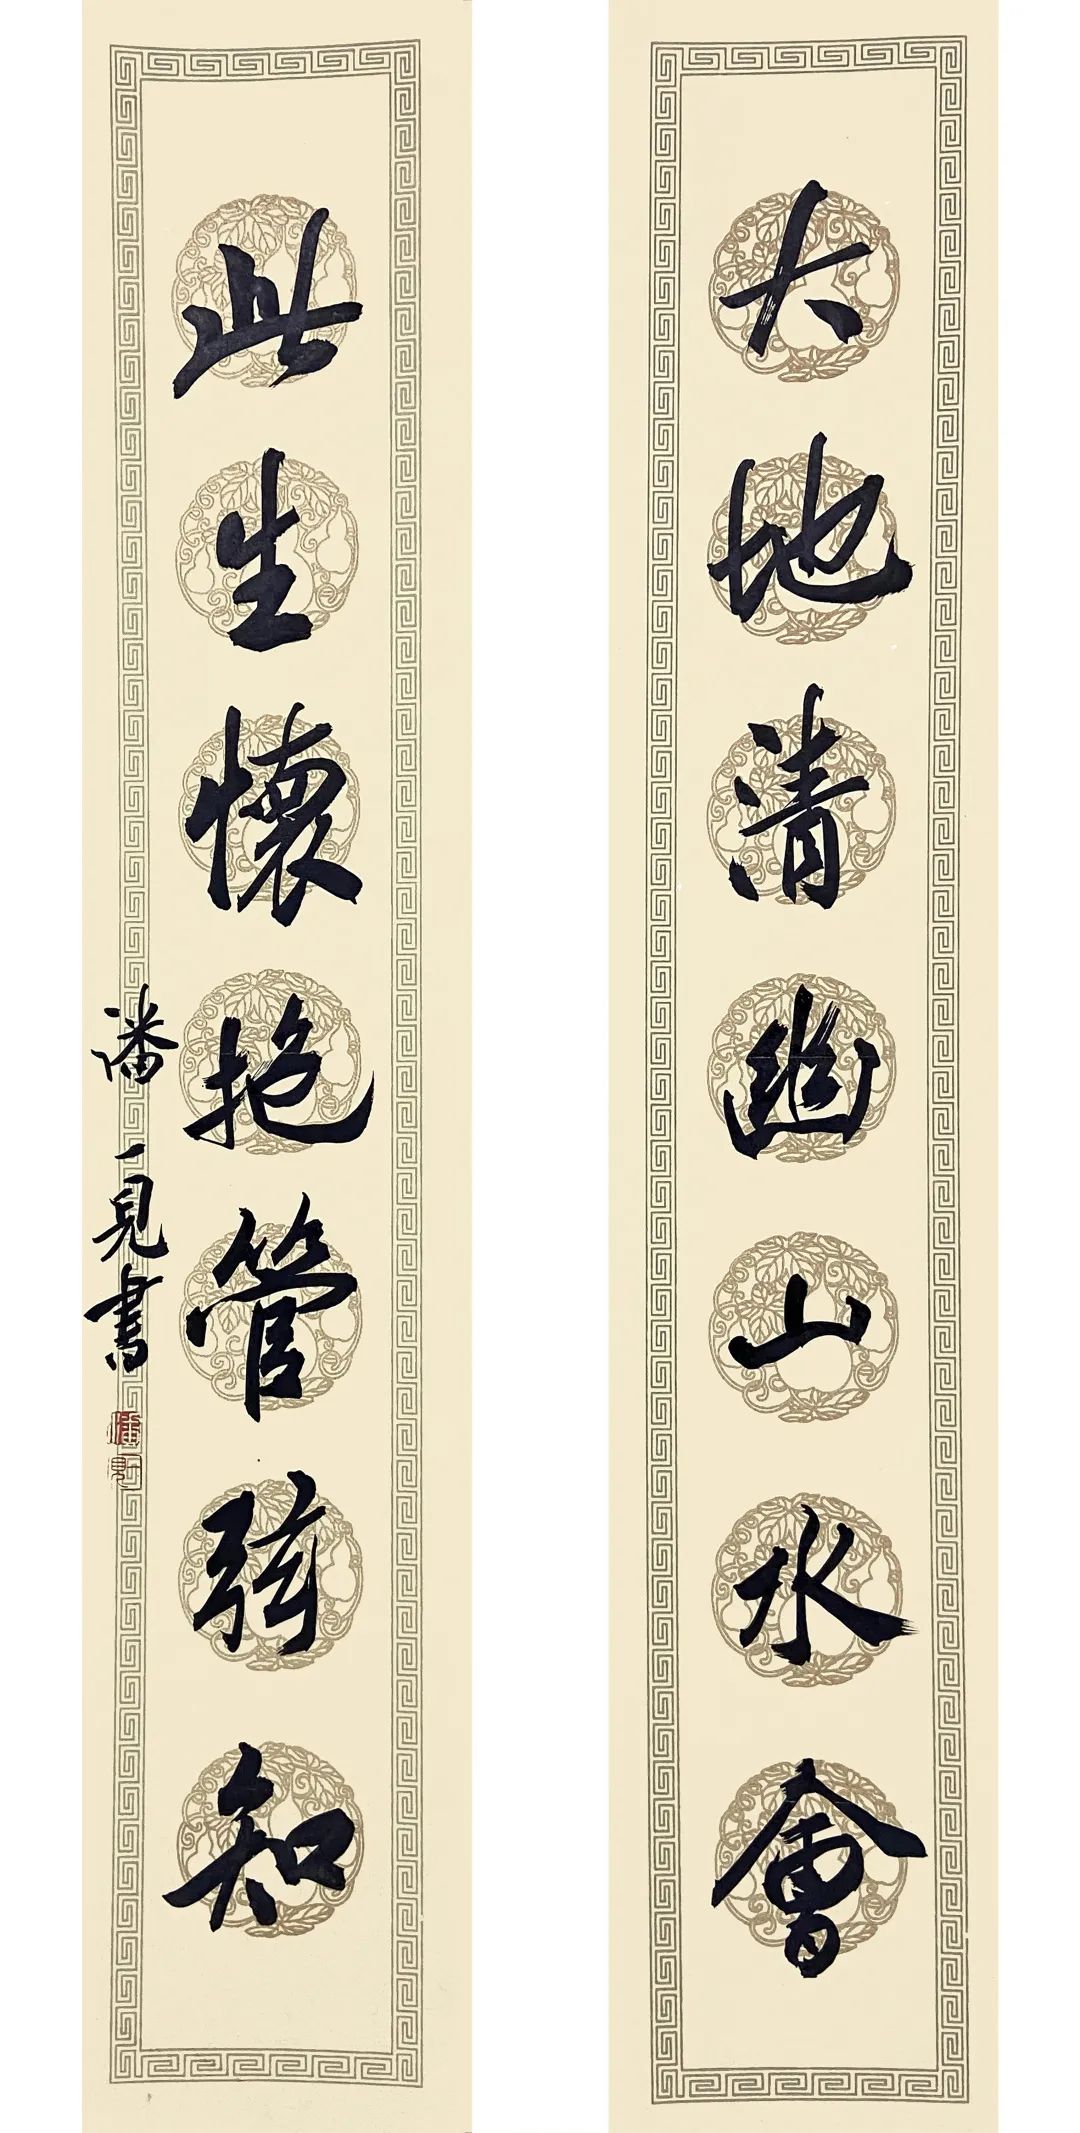 大地清幽山水會
此生懷抱管弦知
潘一見書
潘
一見